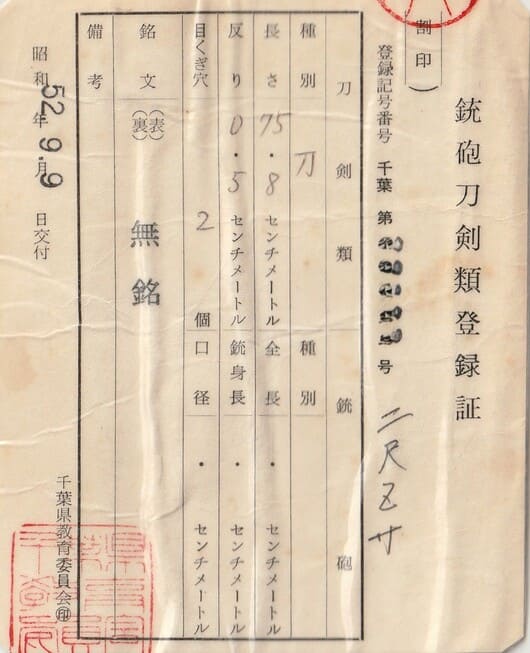 銃砲刀剣類登録証
（割印）
登録記号番号 千葉 第 号
二尺五寸
刀剣類 銃砲
種別 刀 種別
長さ 75・8 センチメートル 全長 ・ センチメートル
反り 0・5 センチメートル 銃身長 ・ センチメートル
目くぎ穴 2 個 口径 ・ センチメートル
銘文 （表）（裏） 無銘
備考
昭和52年9.月9日交付
千葉県教育委員会㊞